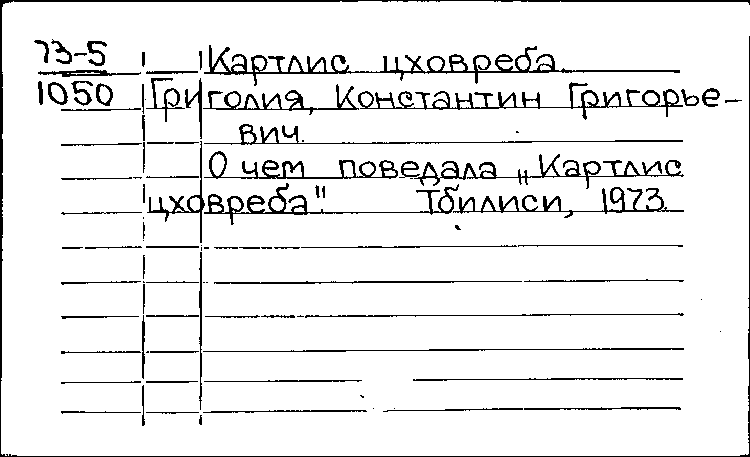 73-5 Картлис цховреба.
1050 Григолия, Константин Григорье-
вич.
О чем поведала „Картлис
цховреба". Тбилиси, 1973.